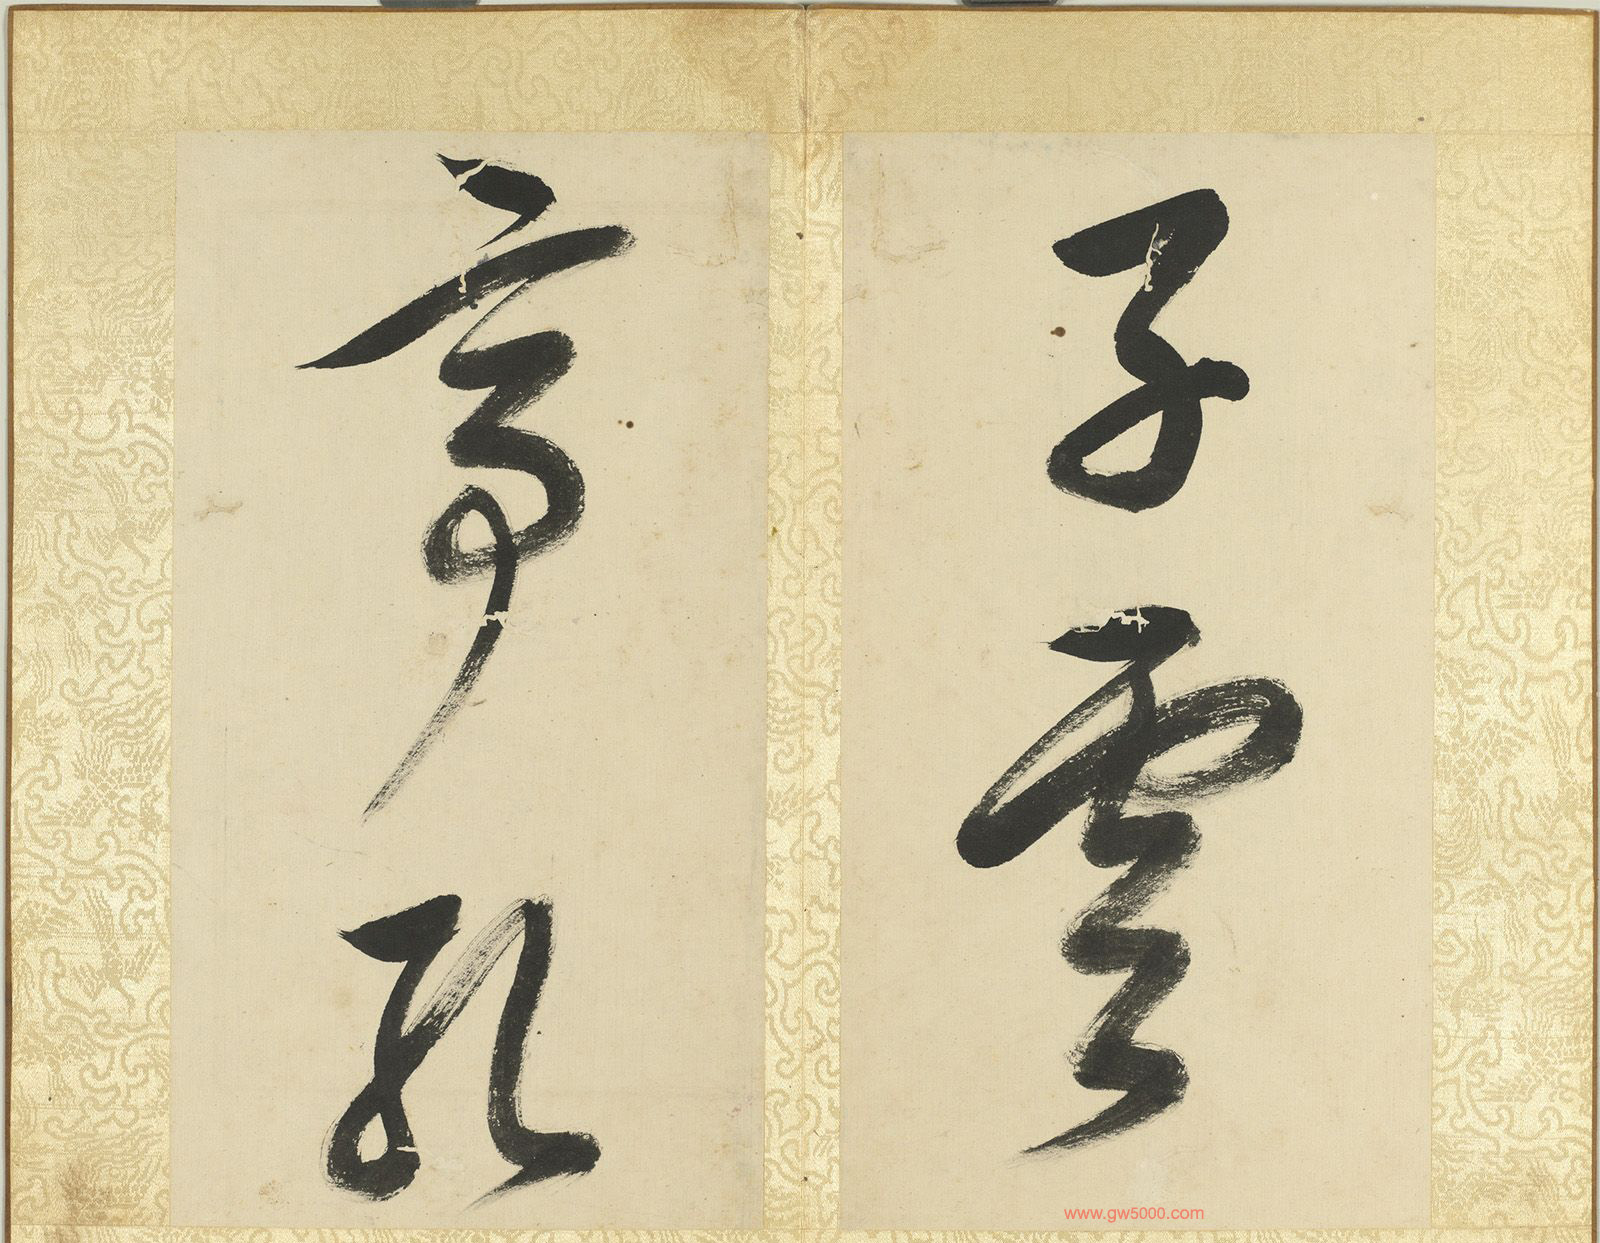 子雲
亭孔
www.gw5000.com